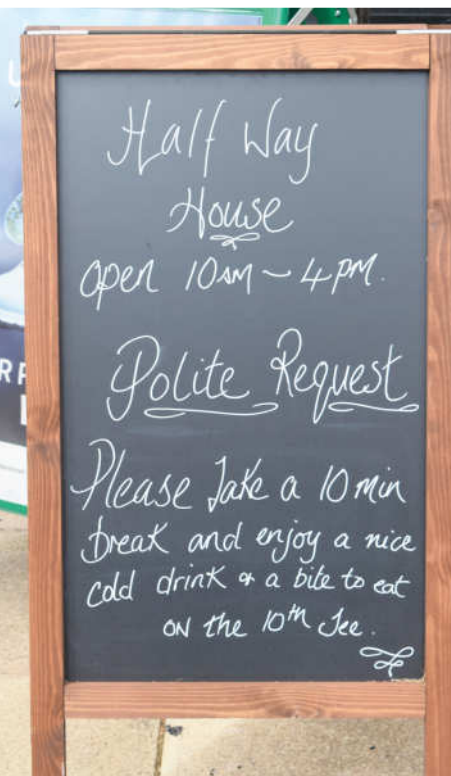 Half Way
House
open 10AM - 4PM.
Polite Request
Please Take a 10 min
break and enjoy a nice
cold drink & a bite to eat
on the 10th Tee.